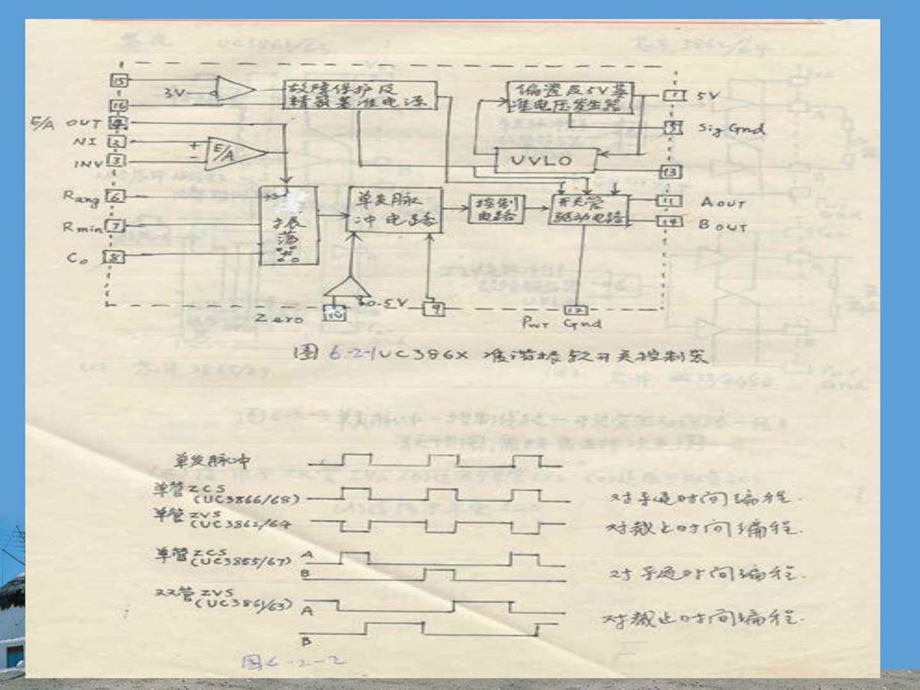 15
3V
16
故障保护及
精密基准电源
偏置及5V基
准电压发生器
1
5V
E/A OUT 4
5
Sig Gnd
NI 2
+
INV 3
-
E/A
UVLO
13
Rang 6
Rmin 7
Co 8
振荡器
单发脉
冲电路
控制
电路
开关管
驱动电路
11
A OUT
14
B OUT
Zero
10
0.5V
9
12
Pwr Gnd
图6-2-1 UC386X 准谐振软开关控制器
单发脉冲
单管ZCS
(UC3866/68)
对导通时间编程.
单管ZVS
(UC3862/64
对截止时间编程.
单管ZCS
(UC3865/67)
A
B
对导通时间编程.
双管ZVS
(UC3861/63)
A
B
对截止时间编程.
图6-2-2